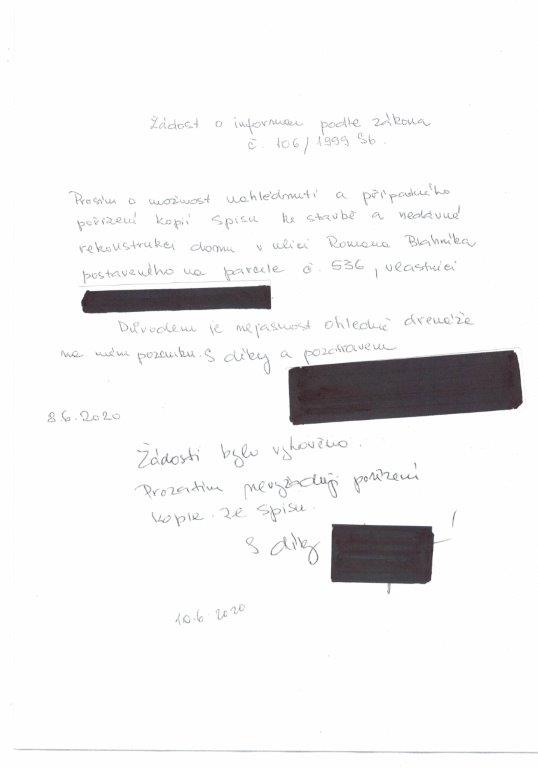 Žádost o informaci podle zákona
č. 106/1999 Sb.
Prosím o možnost nahlédnutí a případného
pořízení kopií spisu ke stavbě a nedávné
rekonstrukci domu v ulici Romana Blahníka
postaveného na parcele č. 536, vlastníci
Důvodem je nejasnost ohledně drenáže
na mém pozemku. S díky a pozdravem
8.6.2020
Žádosti bylo vyhověno.
Prozatím nevyžaduji pořízení
kopie ze spisu.
S díky
10.6.2020